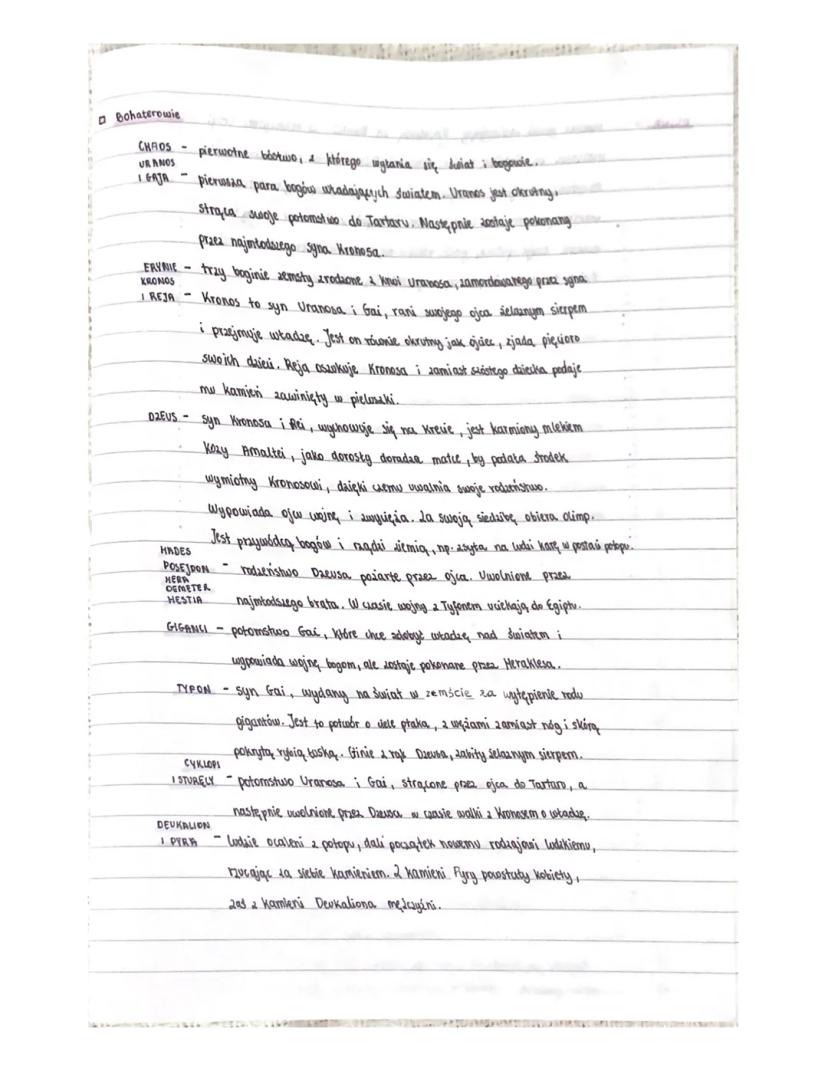 Bohaterowie
CHAOS - pierwotne bóstwo, z którego wyłania się świat i bogowie.
URANOS
I GAJA - pierwsza para bogów władających światem. Uranos jest okrutny,
strąca swoje potomstwo do Tartaru. Następnie zostaje pokonany
przez najmłodszego syna Kronosa.
ERYNIE - trzy boginie zemsty zrodzone z krwi Uranosa, zamordowanego przez syna
KRONOS
I REJA - Kronos to syn Uranosa i Gai, rani swojego ojca żelaznym sierpem
i przejmuje władzę. Jest on równie okrutny jak ojciec, zjada pięcioro
swoich dzieci. Reja oszukuje Kronosa i zamiast szóstego dziecka podaje
mu kamień zawinięty w pieluszki.
DZEUS - syn Kronosa i Rei, wychowuje się na Krecie, jest karmiony mlekiem
kozy Amaltei, jako dorosły doradza matce, by podała środek
wymiotny Kronosowi, dzięki czemu uwalnia swoje rodzeństwo.
Wypowiada ojcu wojnę i zwycięża. Za swoją siedzibę obiera Olimp.
Jest przywódcą bogów i rządzi ziemią, np. zsyła na ludzi karę w postaci potopu.
HADES
POSEJDON - rodzeństwo Dzeusa pożarte przez ojca. Uwolnione przez
HERA
DEMETER
HESTIA najmłodszego brata. W czasie wojny z Tyfonem uciekają do Egiptu.
GIGANCI - potomstwo Gai, które chce zdobyć władzę nad światem i
wypowiada wojnę bogom, ale zostaje pokonane przez Heraklesa.
TYFON - syn Gai, wydany na świat w zemście za wytępienie rodu
gigantów. Jest to potwór o ciele ptaka, z wężami zamiast nóg i skórą
pokrytą rybią łuską. Ginie z rąk Dzeusa, zabity żelaznym sierpem.
CYKLOPI
I STURĘCY - potomstwo Uranosa i Gai, strącone przez ojca do Tartaru, a
następnie uwolnione przez Dzeusa w czasie walki z Kronosem o władzę.
DEUKALION
I PYRA - ludzie ocaleni z potopu, dali początek nowemu rodzajowi ludzkiemu,
rzucając za siebie kamieniem. Z kamieni Pyry powstały kobiety,
zaś z kamieni Deukaliona mężczyźni.